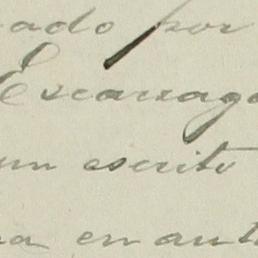 ado por
Escarraga
un escrito
na en aut